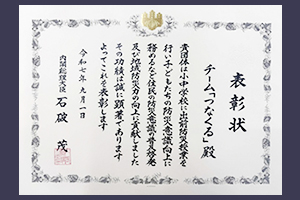 表彰状
チーム「つなぐる」殿
貴団体は小中学校に出前防災授業を
行い子どもたちの防災意識の向上に
務めるなど住民の防災意識の普及啓発
及び地域防災力の向上に貢献しました
その功績は誠に顕著であります
よってこれを表彰します
令和七年九月一日
内閣総理大臣 石破茂